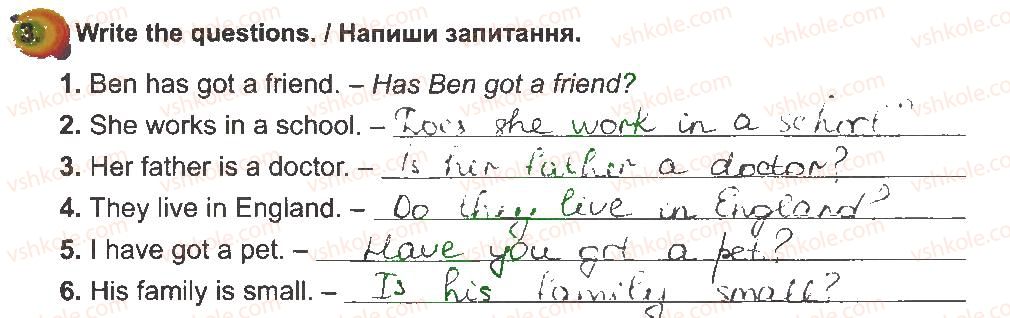 3. Write the questions. / Напиши запитання.
1. Ben has got a friend. – Has Ben got a friend?
2. She works in a school. – Does she work in a school?
3. Her father is a doctor. – Is her father a doctor?
4. They live in England. – Do they live in England?
5. I have got a pet. – Have you got a pet?
6. His family is small. – Is his family small?